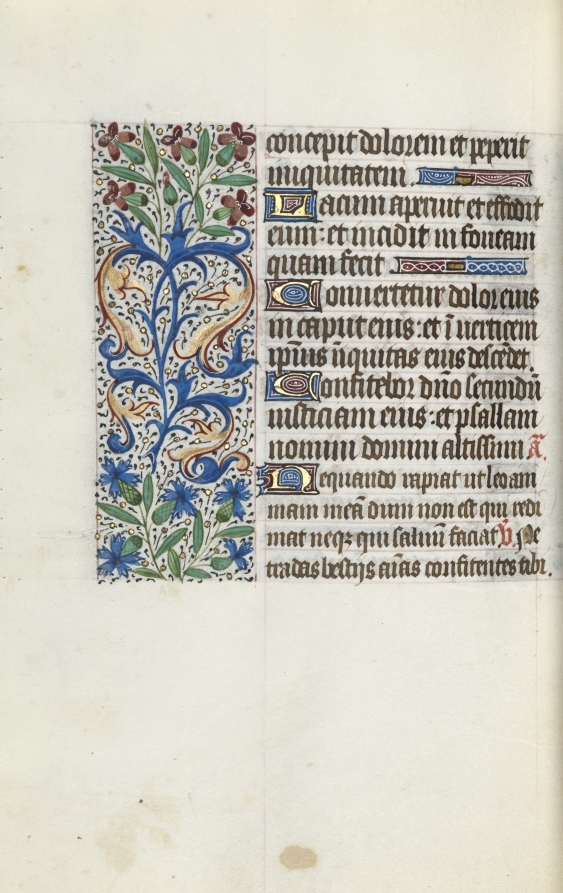 concepit dolorem et peperit
iniquitatem.
Lacum aperuit et effodit
eum: et incidit in foueam
quam fecit
Conuertetur dolor eius
in caput eius: et ī uerticem
ipsius īiquitas eius descēdet.
Confitebor dn̄o secundū
iusticiam eius: et psallam
nomini domini altissimi A͞.
Nequando rapiat ut leo am
mam meā dum non est qui redi
mat neqꝫ qui saluū faciat V̄. Ne
tradas bestijs aīas confitentes tibi.